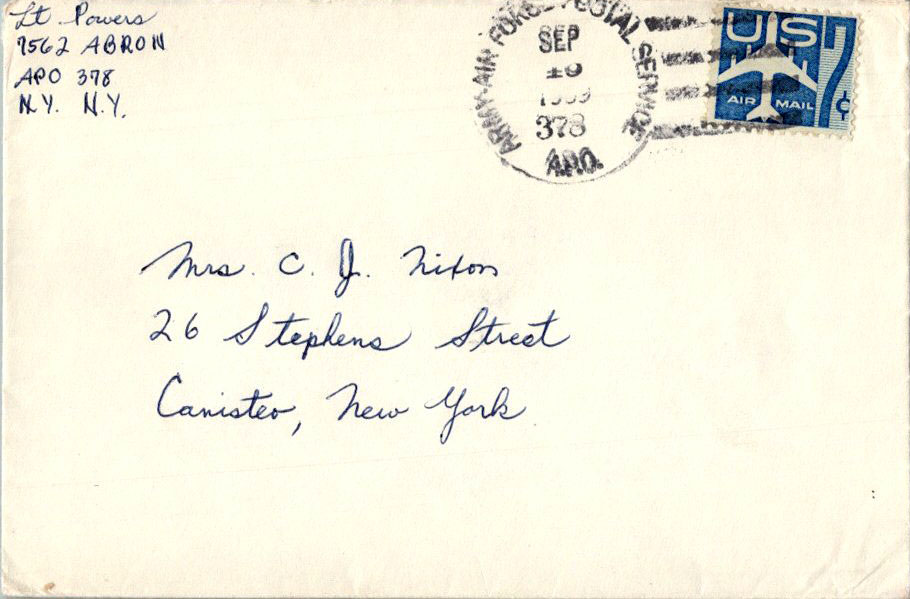 Lt Powers
7562 ABRON
APO 378
N.Y. N.Y.
ARMY-AIR FORCE POSTAL SERVICE
SEP
1959
378
A.P.O.
US 7¢
AIR MAIL
Mrs. C. J. Nixon
26 Stephens Street
Canisteo, New York